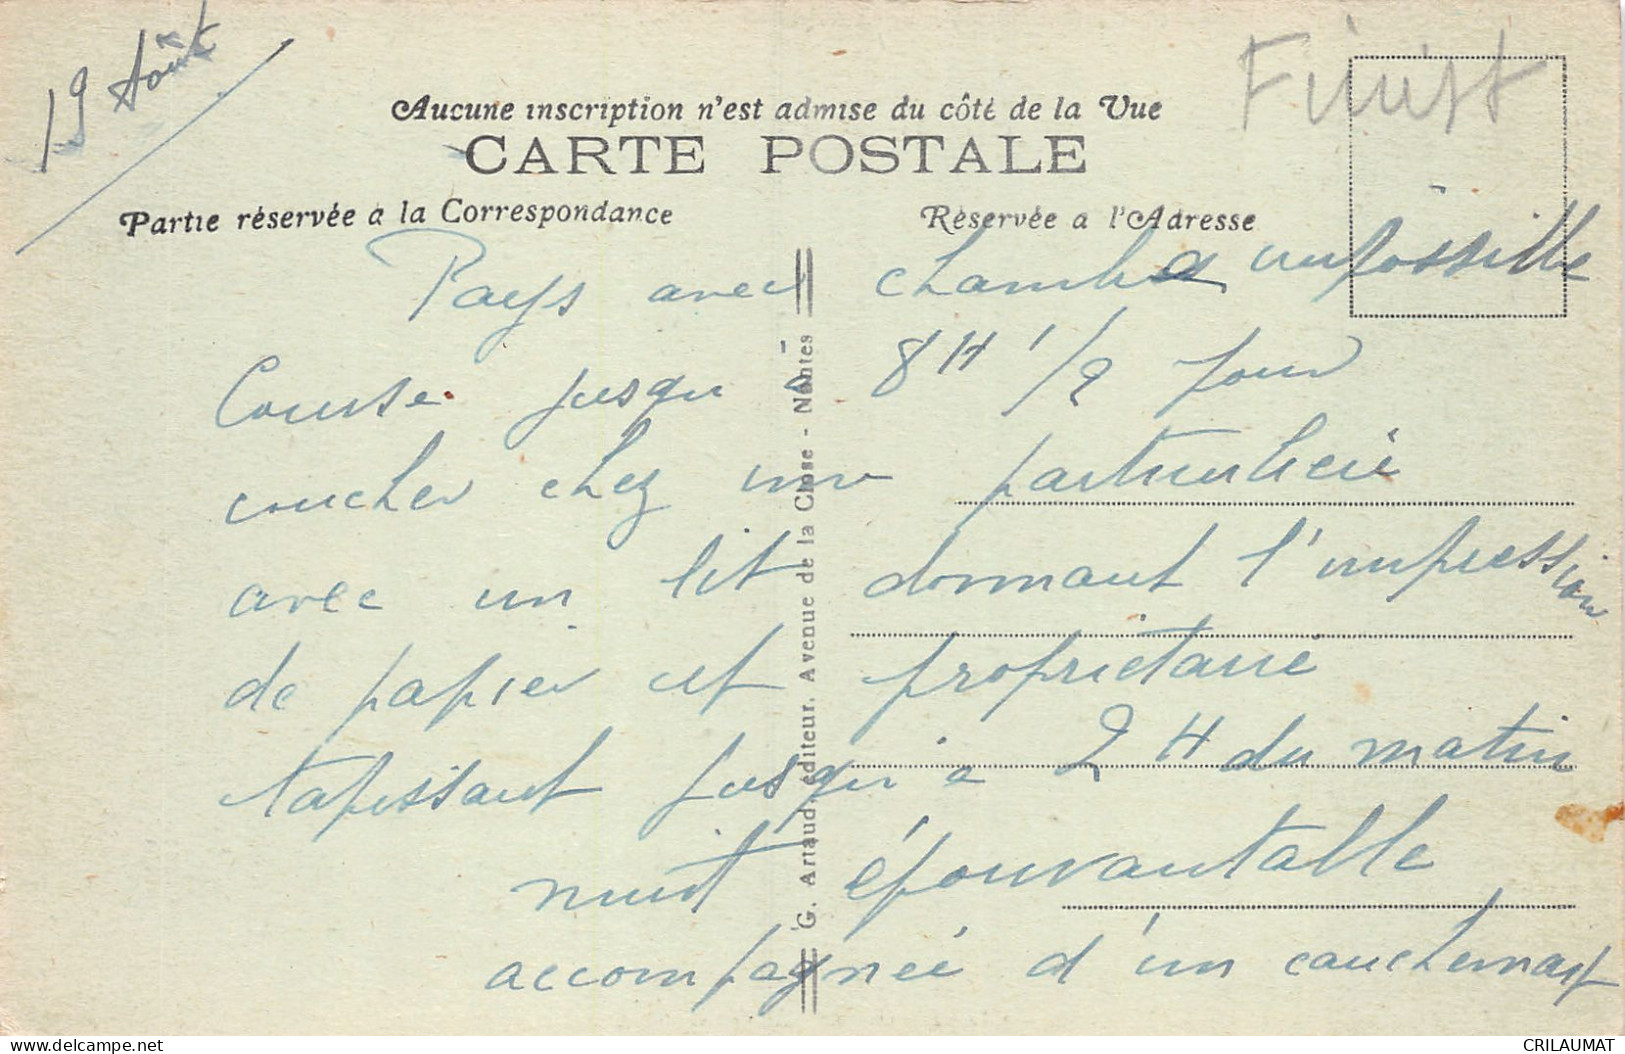 19 Août
Finist
Aucune inscription n'est admise du côté de la Vue
CARTE POSTALE
Partie réservée à la Correspondance
Réservée a l'Adresse
Pays avec chambre impossible
Course jusqu'à 8H 1/2 pour
coucher chez un particulier
avec un lit donnant l'impression
de papier et propriétaire
tapissant jusqu'a 2 H du matin
nuit épouvantable
accompagnée d'un cauchemart
G. Artaud, éditeur. Avenue de la Close - Nantes
delcampe.net
CRILAUMAT